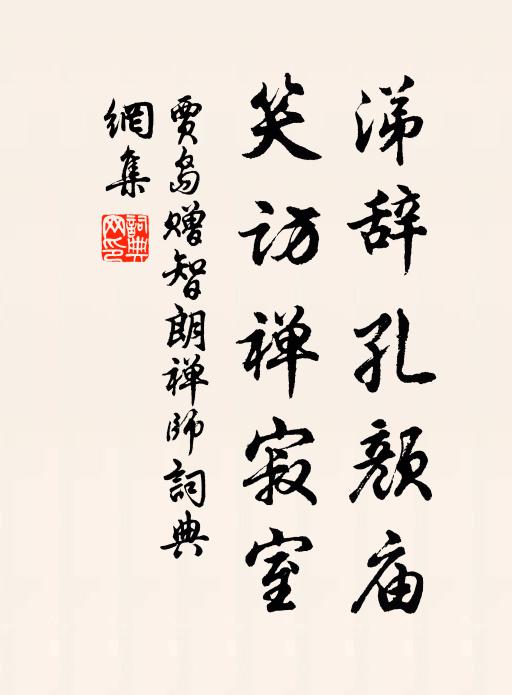 涕辞孔颜庙
笑访禅寂室
贾岛赠智朗禅师詞典
網集
詞典網印